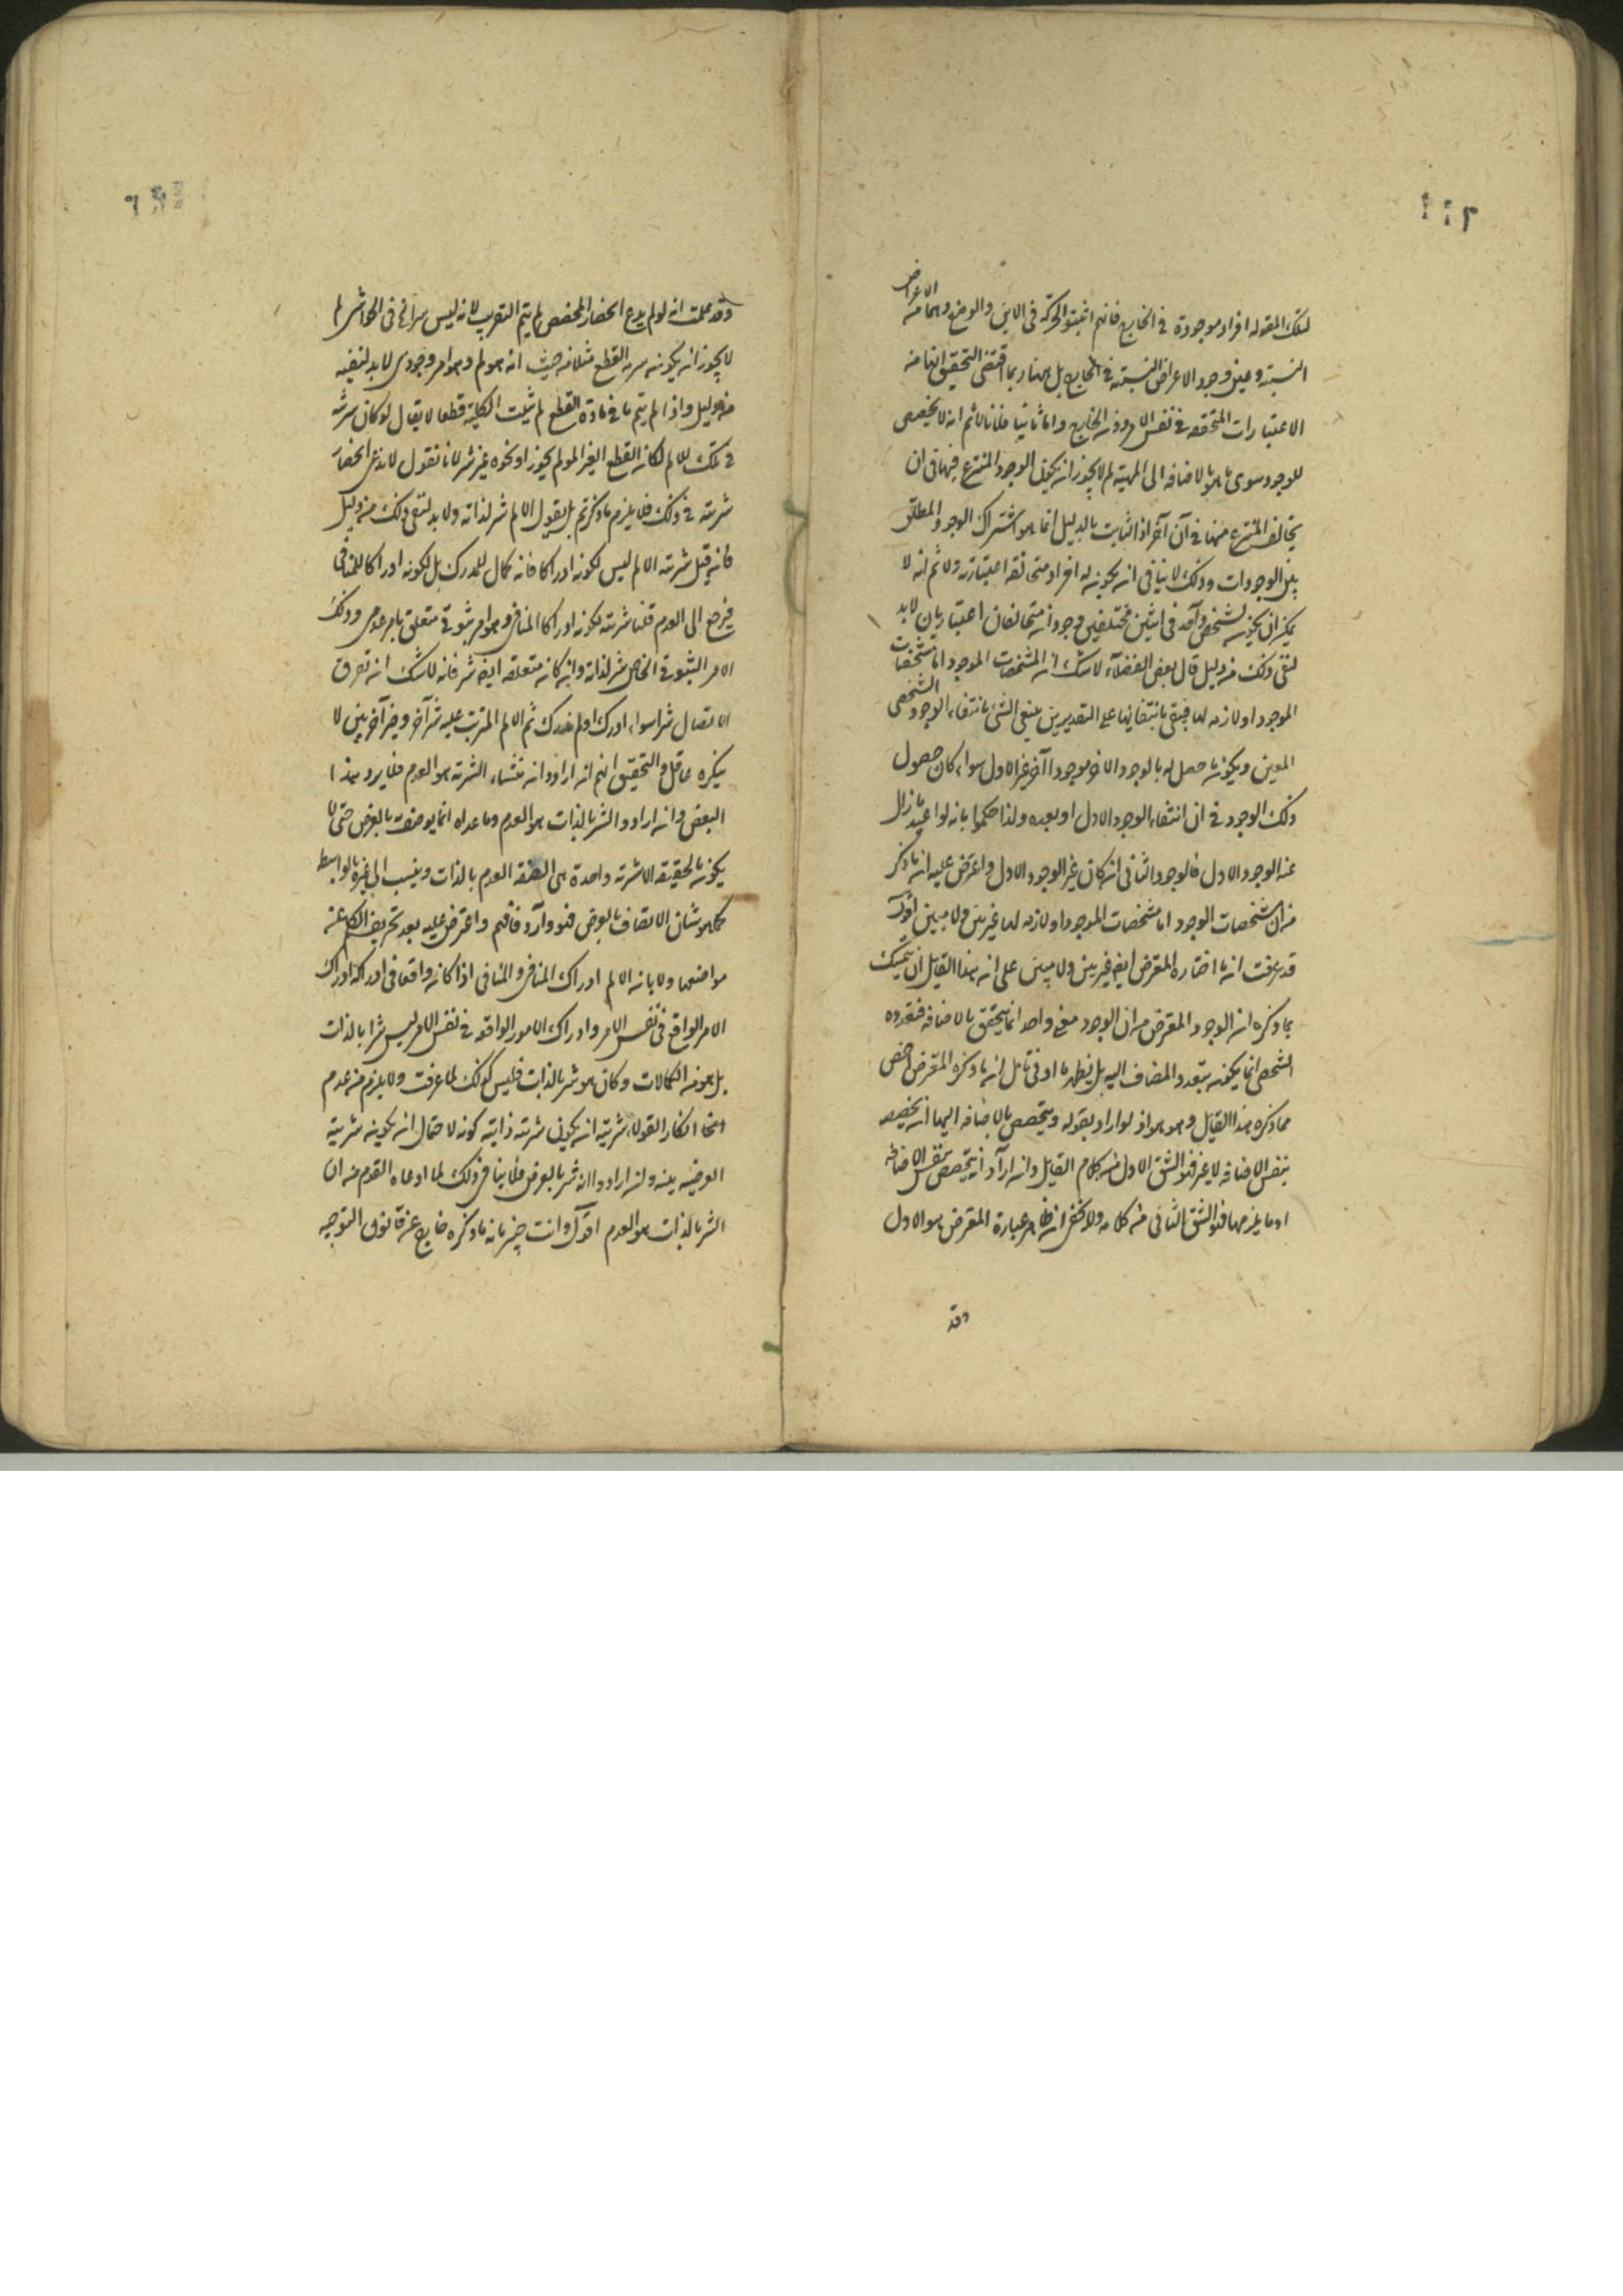 لتلك المقوله افراد موجودة فى الخارج فانهم اثبتوا الحركة فى الاين والوضع وهما من الاعراض
النسبية وعين وجود الاعراض النسبية فى الخارج بل هنا ربما اقتضى التحقيق انها من
الاعتبارات المتحققة فى نفس الامر دون الخارج واما ثانيا فلانا لا ثم انه لا تخصص
للوجود سوى ما هو بالاضافه الى المهية لم لا يجوز ان يكون الوجود المنتزع فيها فى ان
يخالف المنتزع منها فى آن آخر اذ الثابت بالدليل انما هو اشتراك الوجود المطلق
بين الوجودات وذلك لا ينافى ان يكون له افراد متخالفة اعتبارية ولا ثم انه لا
يمكن ان يكون لشخص واحد فى اثنين مختلفين وجودان متخالفان اعتباريان لابد
لنفى ذلك من دليل قال بعض الفضلاء لا شك ان المشخصات الموجود اما مشخصات
الموجود او لازمه لها فينتفى بانتفائها على التقديرين ينتفى الشئ بانتفاء الوجود الشخصى
المعين ويكون ما حصل له بالوجود الاخر موجودا آخر غير الاول سواء كان حصول
ذلك الوجود فى ان انتفاء الوجود الاول او بعده ولذا حكموا بانه لو اعيد ما زال
عنه الوجود الاول فالوجود الثانى ان كان غير الوجود الاول واعترض عليه ان ما ذكر
من ان مشخصات الوجود اما مشخصات الموجود او لازمه لها غير بين ولا مبين اقول
قد عرفت ان ما اختاره المعترض ايضا غير بين ولا مبين على ان هذا القايل ان يتمسك
بما ذكره ان الوجود المعترض من ان الوجود معنى واحد انما يتحقق بالاضافه فتعدده
الشخصى انما يكون بتعدد المضاف اليه بل يظهر بادنى تامل ان ما ذكره المعترض اخص
مما ذكره هذا القايل وهو هو اذ لو اراد بقوله ويتخصص بالاضافه اليها ان تخصيصه
بنفس الاضافه لا غير فهو الشق الاول من كلام القايل وان اراد ان يتخصص بنفس الاضافه
او ما يلزمها فهو الشق الثانى من كلامه ولا يخفى ان ظاهر عبارة المعترض هو الاول
وقد
وقد علمت انه لو لم يدع انحصار المخصص لم يتم التقريب لانه ليس سرا فى الحواشى لم
لا يجوز ان يكون سر القطع مثلا من حيث انه مولم وهو امر وجودى لابد لنفيه
من دليل واذا لم يتم ما فى مادة القطع لم يثبت الكلية قطعا لا يقال لو كان شرية
فى تلك للالم لكان القطع الغير المولم يجوز او نحوه غير شر لانا نقول لا ندعى انحصار
شريته فى ذلك فلا يلزم ما ذكرتم بل نقول الالم شر لذاته ولابد لنفى ذلك من دليل
فان قيل شرية الالم ليس لكونه ادراكا فانه كمال للمدرك بل لكونه ادراكا للمنافى
فيرجع الى العدم قلنا شريته لكونه ادراكا للمنافى وهو امر ثبوتى متعلق بامر عدمى وذلك
الامر الثبوتى الخاص شر لذاته وان كان متعلقه ايضا شر فانه لا شك ان تفرق
الاتصال شر سواء ادرك او لم يدرك ثم الالم المترتب عليه شر آخر وشر آخر بين لا
ينكره عاقل والتحقيق انهم ان ارادوا ان منشاء الشرية هو العدم فلا يرد هذا
البعض وان ارادوا الشر بالذات هو العدم وما عداه انما يوصف بالعرض حتى لا
يكون بالحقيقة الا شرية واحدة هى لصفة العدم بالذات وينسب الى غيره بالواسط
كما هو شان الاتصاف بالعرض فهو وارد فافهم واعترض عليه بعد تحريف الكلم عن
مواضعها ولا بان الالم ادراك المنافى والمنافى اذا كان واقعا فى ادراكه ادراك
الامر الواقع فى نفس الامر وادراك الامور الواقعه فى نفس الامر ليس شرا بالذات
بل هو من الكمالات وكان هو شر بالذات فليس كذلك لما عرفت ولا يلزم من عدم
انكار القول بشريته ان يكون شريته ذاتية كونه لاحتمال ان يكون شريته
العرضيه بينه وان ارادوا انه شر بالعرض فلا ينافى ذلك لما ادعاه القوم من ان
الشر بالذات هو العدم اقول وانت خبير بان ما ذكره خارج عن قانون التوجيه